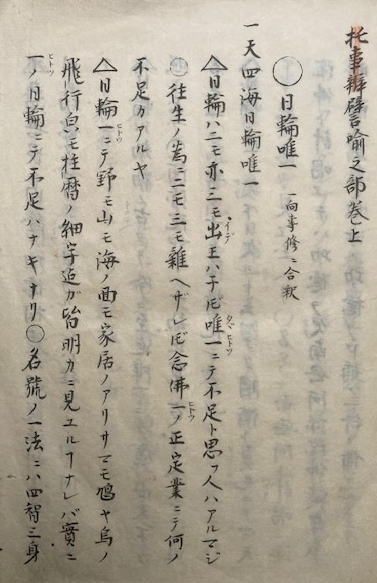 托事辨譬喩之部巻上
◯日輪唯一 一向專修ニ合釈
一天四海日輪唯一
△日輪ハ二モ亦三モ出玉ハ子ドモ唯一ニテ不足ト思フ人ハアルマジ
◯往生ノ為ニ二モ三モ雜ヘザレドモ念佛一ノ正定業ニテ何ノ
不足カアルヤ
△日輪一ニテ野モ山モ海ノ面モ家居ノアリサマモ鳩ヤ烏ノ
飛行㒵モ柱暦ノ細字迠ガ皆明カニ見ユルヿナレバ實ニ
一ノ日輪ニテ不足ハナキナリ◯名號ノ一法ニハ四智三身